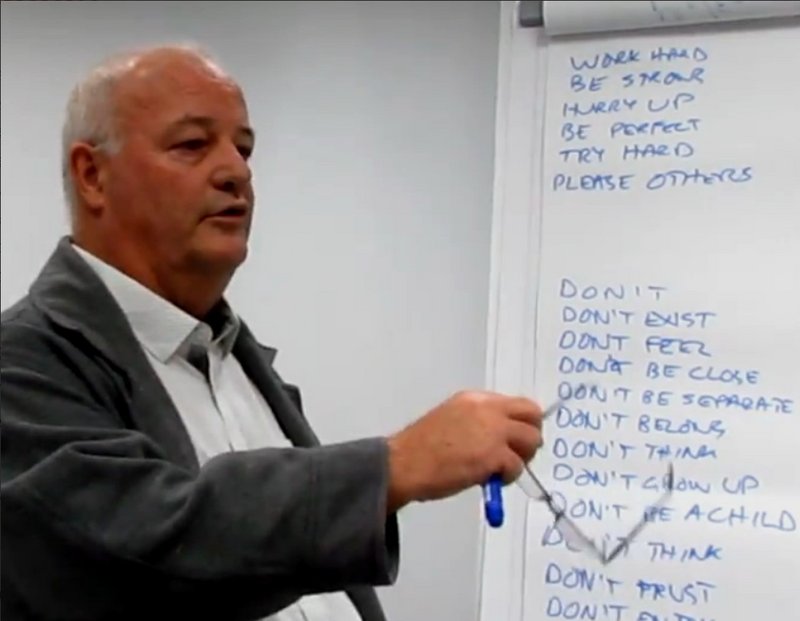 WORK HARD
BE STRONG
HURRY UP
BE PERFECT
TRY HARD
PLEASE OTHERS
DON'T
DON'T EXIST
DONT FEEL
DON'T BE CLOSE
DON'T BE SEPARATE
DON'T BELONG
DON'T THINK
DON'T GROW UP
DON'T BE A CHILD
DON'T THINK
DON'T TRUST
DON'T